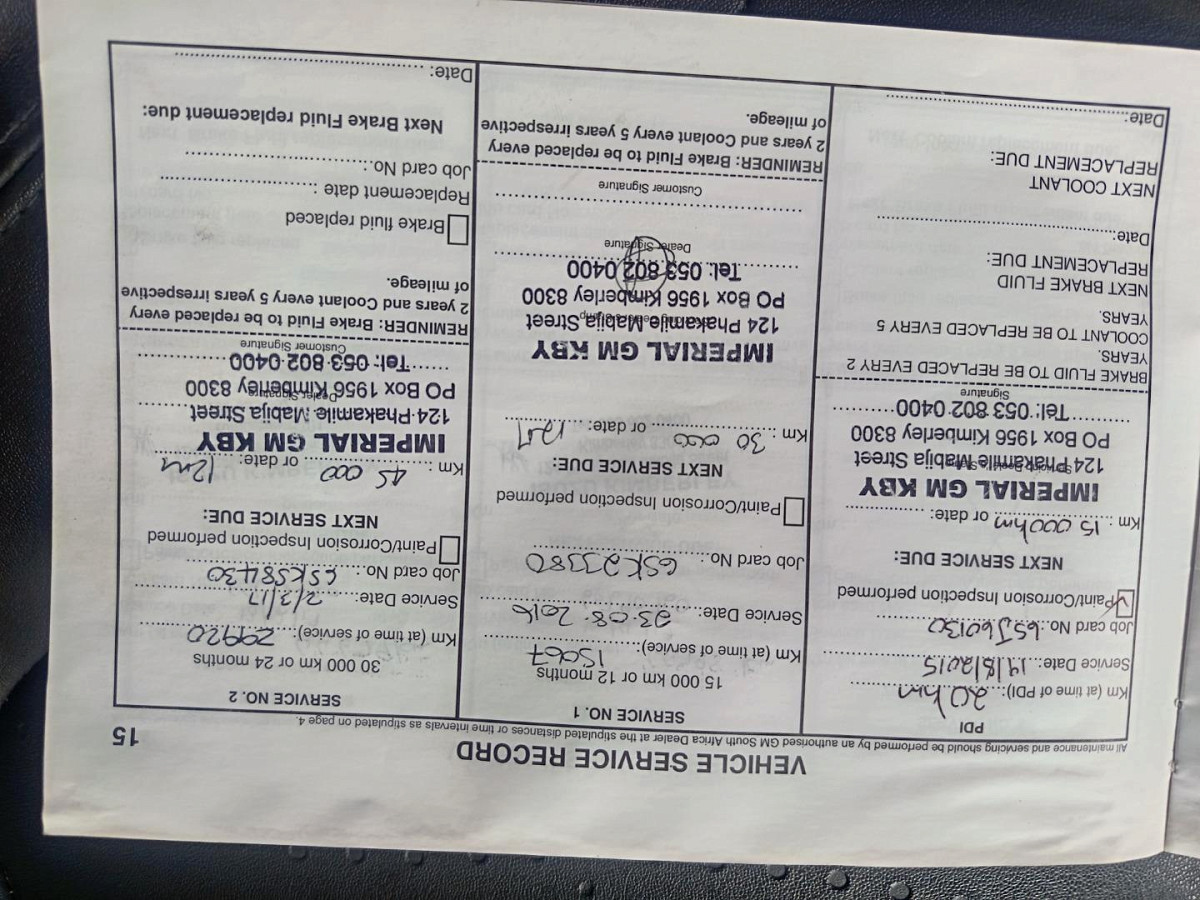 VEHICLE SERVICE RECORD
15
All maintenance and servicing should be performed by an authorised GM South Africa Dealer at the stipulated distances or time intervals as stipulated on page 4.
PDI
Km (at time of PDI): 20km
Service Date: 19/8/2015
Job card No.: GSJ60130
Paint/Corrosion Inspection performed
NEXT SERVICE DUE:
Km : 15 000km or date:
IMPERIAL GM KBY
124 Phakamile Mabija Street
PO Box 1956 Kimberley 8300
Tel: 053 802 0400
Signature
BRAKE FLUID TO BE REPLACED EVERY 2
YEARS.
COOLANT TO BE REPLACED EVERY 5
YEARS.
NEXT BRAKE FLUID
REPLACEMENT DUE:
Date:
NEXT COOLANT
REPLACEMENT DUE:
Date:
SERVICE NO. 1
15 000 km or 12 months
Km (at time of service): 15067
Service Date: 23.08.2016
Job card No.: GSK23380
Paint/Corrosion Inspection performed
NEXT SERVICE DUE:
Km : 30 000 or date: 12m
IMPERIAL GM KBY
124 Phakamile Mabija Street
PO Box 1956 Kimberley 8300
Tel: 053 802 0400
Dealer Signature
Customer Signature
REMINDER: Brake Fluid to be replaced every
2 years and Coolant every 5 years irrespective
of mileage.
SERVICE NO. 2
30 000 km or 24 months
Km (at time of service): 29920
Service Date: 2/3/17
Job card No.: GSK58430
Paint/Corrosion Inspection performed
NEXT SERVICE DUE:
Km : 45 000 or date: 12m
IMPERIAL GM KBY
124 Phakamile Mabija Street
Dealer Signature
PO Box 1956 Kimberley 8300
Tel: 053 802 0400
Customer Signature
REMINDER: Brake Fluid to be replaced every
2 years and Coolant every 5 years irrespective
of mileage.
Brake fluid replaced
Replacement date :
Job card No.:
Next Brake Fluid replacement due:
Date: